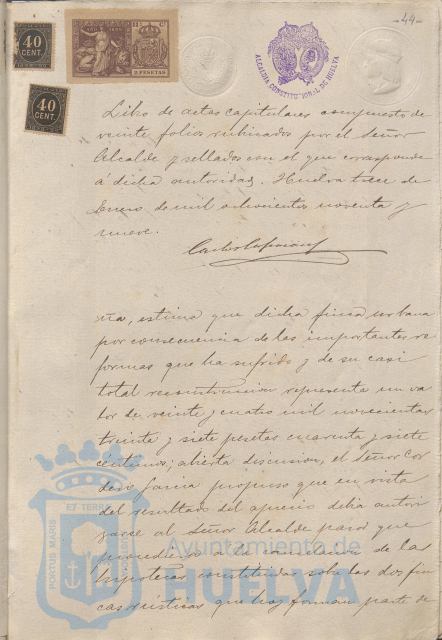 -44-
40
CENT.
40
CENT.
2 PESETAS
ALCALDIA CONSTITUCIONAL DE HUELVA
Libro de actas capitulares compuesto de
veinte folios rubricados por el Señor
Alcalde y sellados con el que corresponde
á dicha autoridad. Huelva trece de
Enero de mil ochocientos noventa y
nueve.
ria, estima que dicha finca urbana
por consecuencia de las importantes re
formas que ha sufrido y de su casi
total reconstruccion representa un va
lor de veinte y cuatro mil novecientas
treinta y siete pesetas cuarenta y siete
céntimos; abierta discusion, el Señor Cor
dero Garcia propuso que en vista
del resultado del aprecio debia autori
zarse al Señor Alcalde para que
procediese a la cancelacion de las
hipotecas constituidas sobre las dos fin
cas rústicas que hoy forman parte de
PORTUS MARIS ET TERRAE
Ayuntamiento de
HUELVA